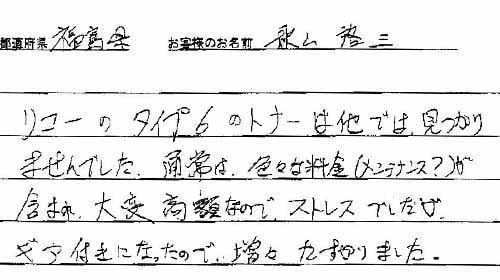 都道府県 福島県 お客様のお名前 秋山 啓三
リコーのタイプ6のトナーは他では、見つかり
ませんでした。通常は、色々な料金(メンテナンス?)が
含まれ、大変高額なので、ストレスでしたが、
ギフト付きになったので、増々 たすかりました。